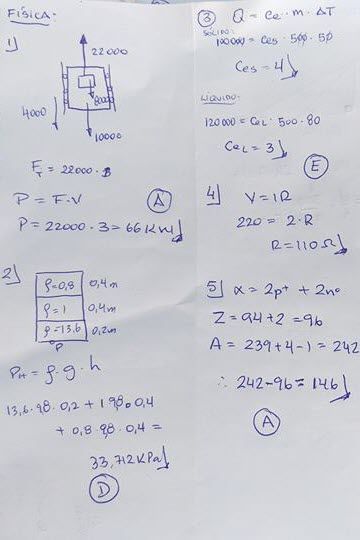 FÍSICA:
1)
22000
8000
4000
10000
P = F·V
(A)
P = 22000·3 = 66KW
2)
ρ=0,8 0,4m
ρ=1 0,4m
ρ=13,6 0,2m
P
PH = ρ·g·h
13,6·9,8·0,2 + 1·9,8·0,4
+ 0,8·9,8·0,4 =
33,712KPa
(D)
(3) Q = ce·m·ΔT
SÓLIDO:
100000 = ces·500·50
Ces = 4
LÍQUIDO:
120000 = CeL·500·80
CeL = 3
(E)
4) V = iR
220 = 2·R
R = 110Ω
5) α = 2p⁺ + 2n⁰
Z = 94+2 = 96
A = 239+4-1 = 242
∴ 242-96 = 146
(A)